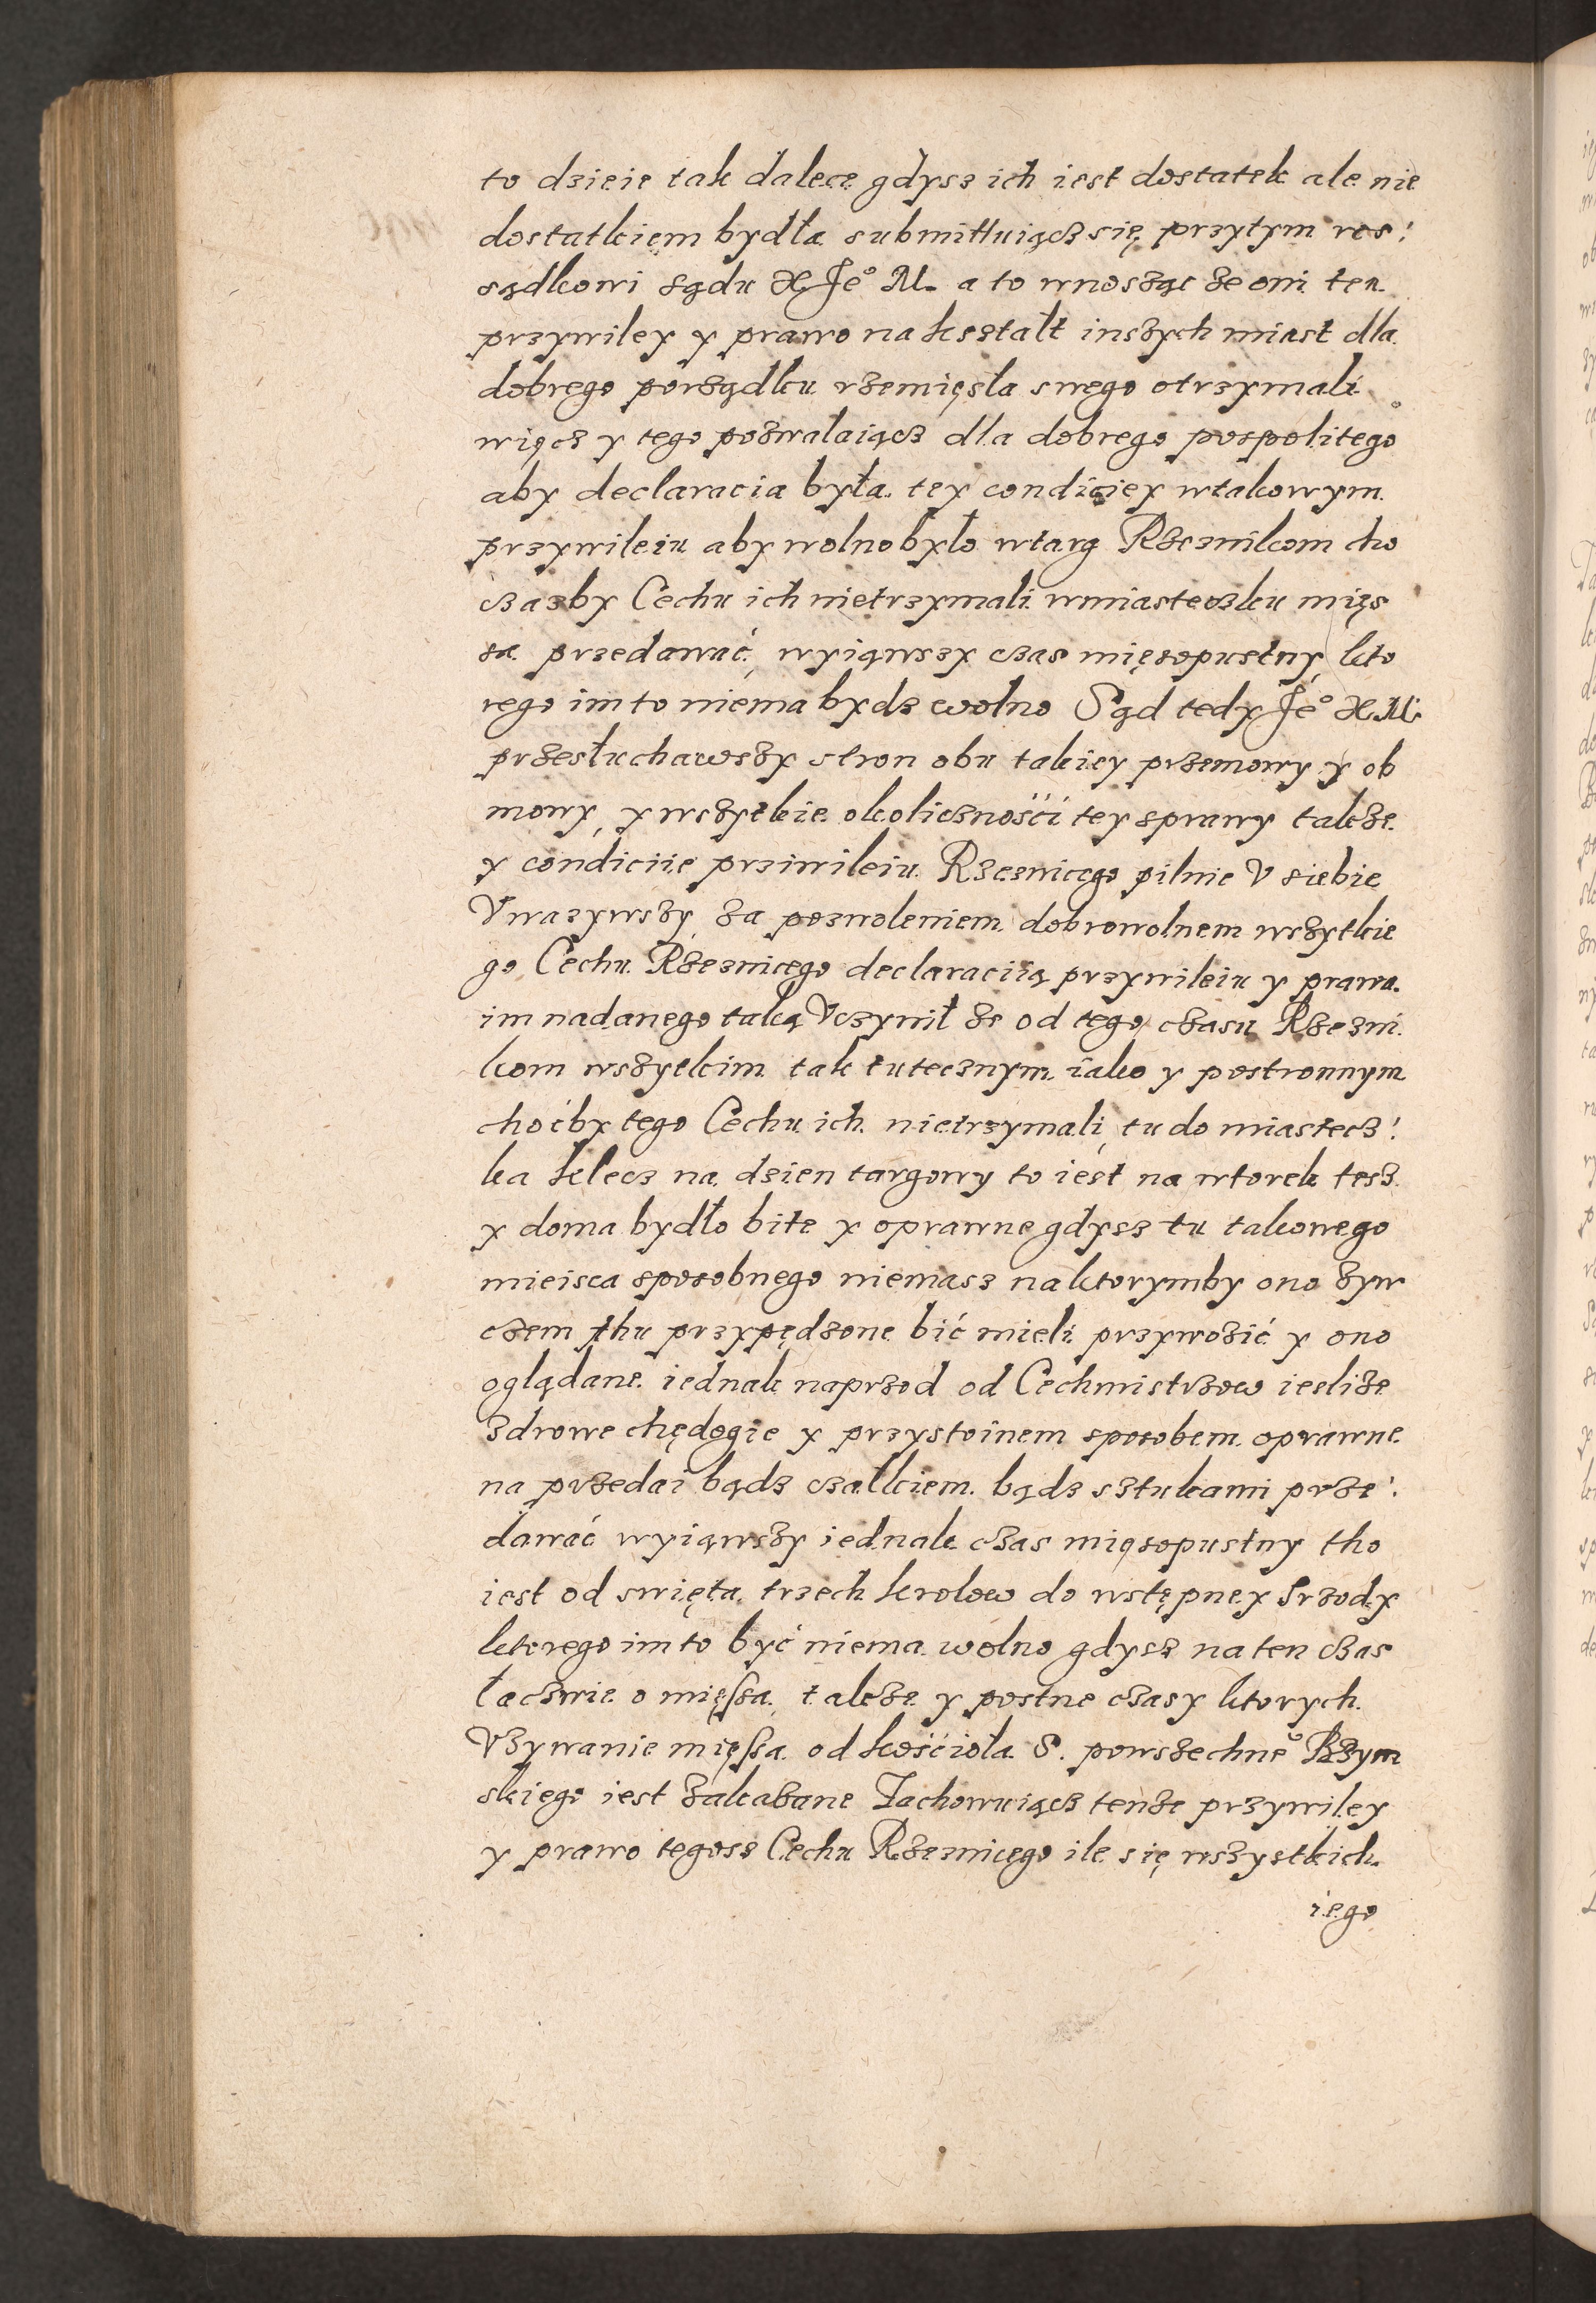 to dzieie tak dalece gdysz ich iest dostatek ale nie
dostatkięm bydła submittuiącz się przytym ros:
sądkowi sądu X. Je° M. a to wnosząc ze oni ten
przywiley y prawo na kształt inszych miast dla
dobrego porządku rzemięsła swego otrzymali
więcz y tego pozwalaiącz dla dobrego pospolitego
aby declaracia była tey condiciey wtakowym
przywileiu aby wolno było wtarg Rzeznikom cho
czazby Cechu ich nietrzymali wmiasteczku mięs
sa przedawać, wyiąwszy czas mięsopustny kto
rego im to niema bydz wolno Sąd tedy Je° X. M.
przesłuchawszy stron obu takiey przemowy y ob
mowy, y wszytkie okoliczności tey sprawy takze
y condiciie prziwileiu Rzeznicego pilnie V siebie
Vwazywszy za pozwoleniem dobrowolnem wszytkie
go Cechu Rzeznicego declaraciią przywileiu y prawa
im nadanego taką Vczynił ze od tego czasu Rzezni
kom wszytkim tak tutecznym iako y postronnym
choćby tego Cechu ich nietrzymali, tu do miastecz:
ka Klecz na dzien targowy to iest na wtorek tesz
y doma bydło bite y oprawne gdysz tu takowego
mieisca sposobnego niemasz na ktorymby ono zyw
czem thu przypędzone bić mieli przywozić y ono
oglądane iednak naprzod od Cechmistrzow iesliże
zdrowe chędogie y przystoinem sposobem oprawne
na przedai bądz czałkiem bądz sztukami prze:
dawać wyiąwszy iednak czas mięsopustny tho
iest od swięta trzech krolow do wstępney Srzody
ktorego im to być niema wolno gdysz na ten czas
łaczwie o mięssa, takze y postne czasy ktorych
Vzywanie mięssa od kościoła S. powszechne° Rzym
skiego iest zakazane Zachowuiącz tenze przywiley
y prawo tegosz Cechu Rzeznicego ile się wszystkich
iego